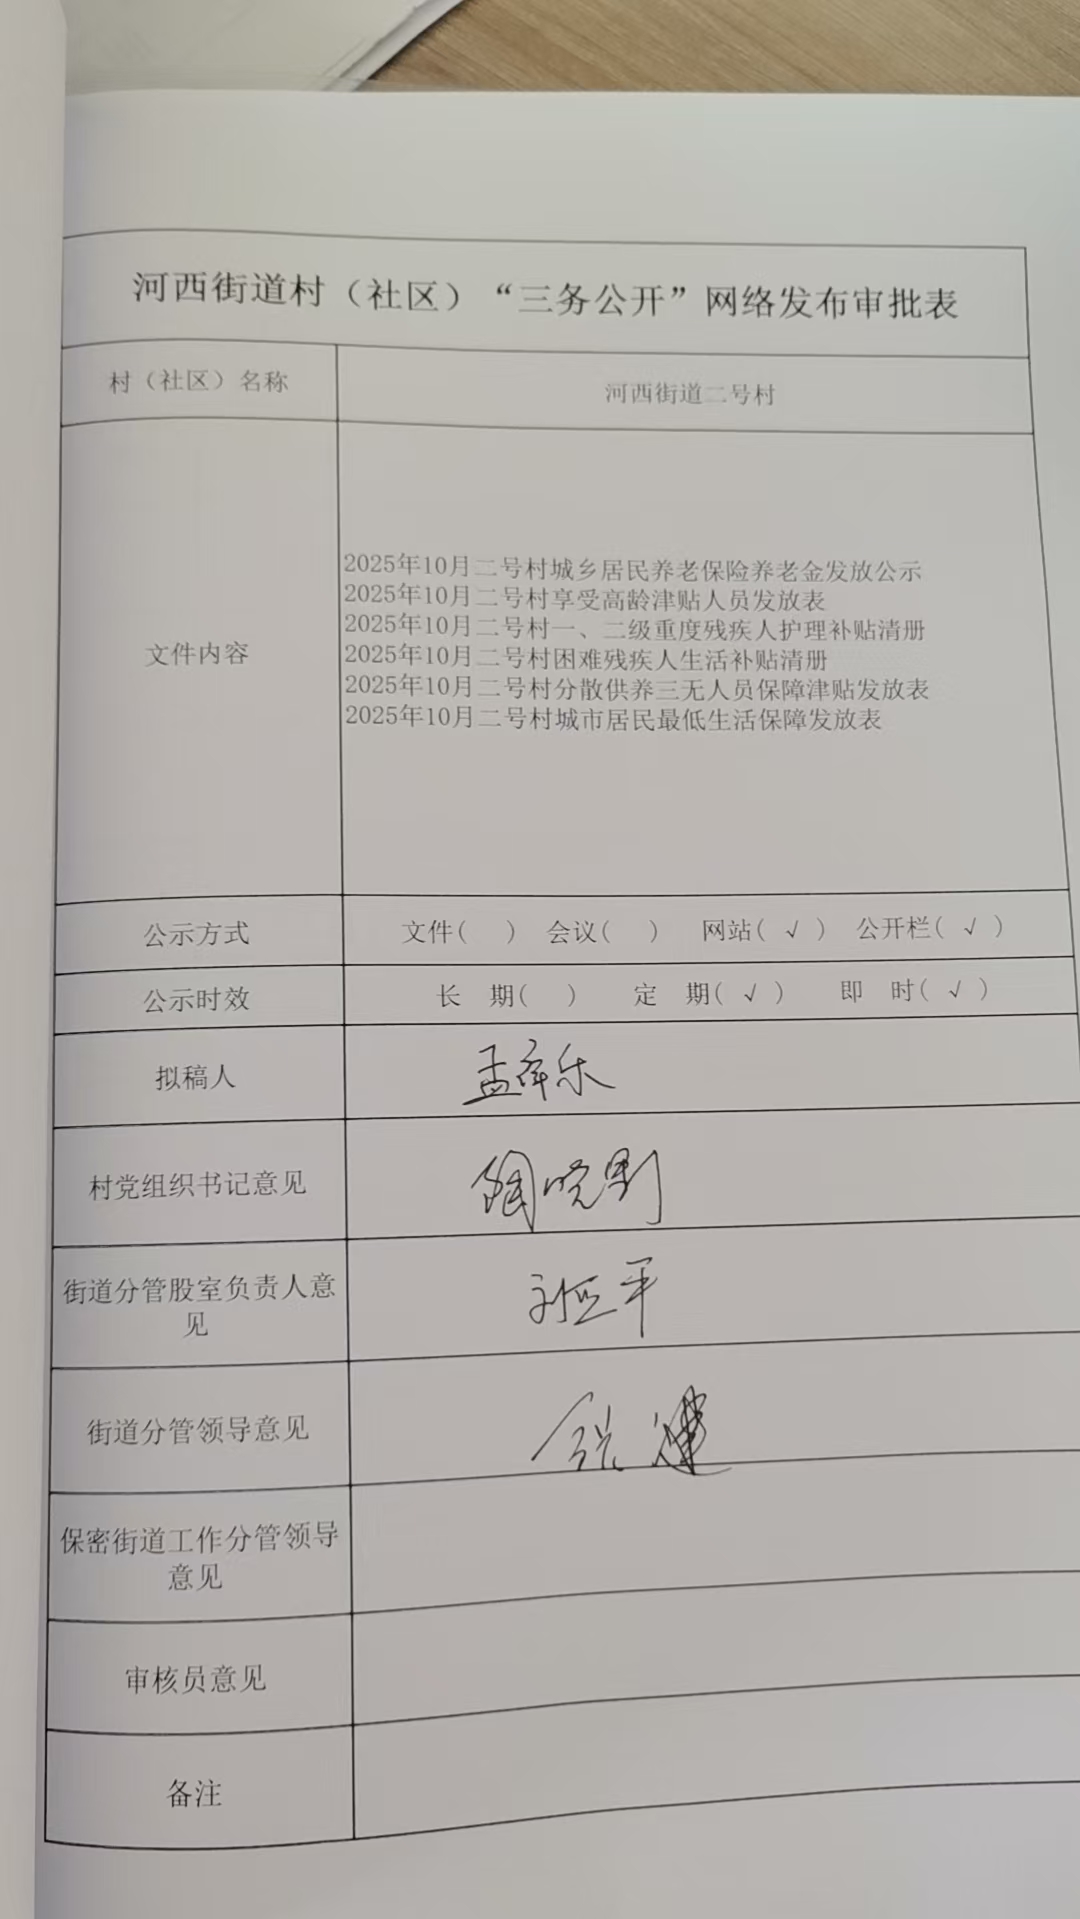 河西街道村（社区）“三务公开”网络发布审批表
村（社区）名称
河西街道二号村
文件内容
2025年10月二号村城乡居民养老保险养老金发放公示
2025年10月二号村享受高龄津贴人员发放表
2025年10月二号村一、二级重度残疾人护理补贴清册
2025年10月二号村困难残疾人生活补贴清册
2025年10月二号村分散供养三无人员保障津贴发放表
2025年10月二号村城市居民最低生活保障发放表
公示方式
文件( ) 会议( ) 网站( √ ) 公开栏( √ )
公示时效
长 期( ) 定 期( √ ) 即 时( √ )
拟稿人
村党组织书记意见
街道分管股室负责人意
见
街道分管领导意见
保密街道工作分管领导
意见
审核员意见
备注